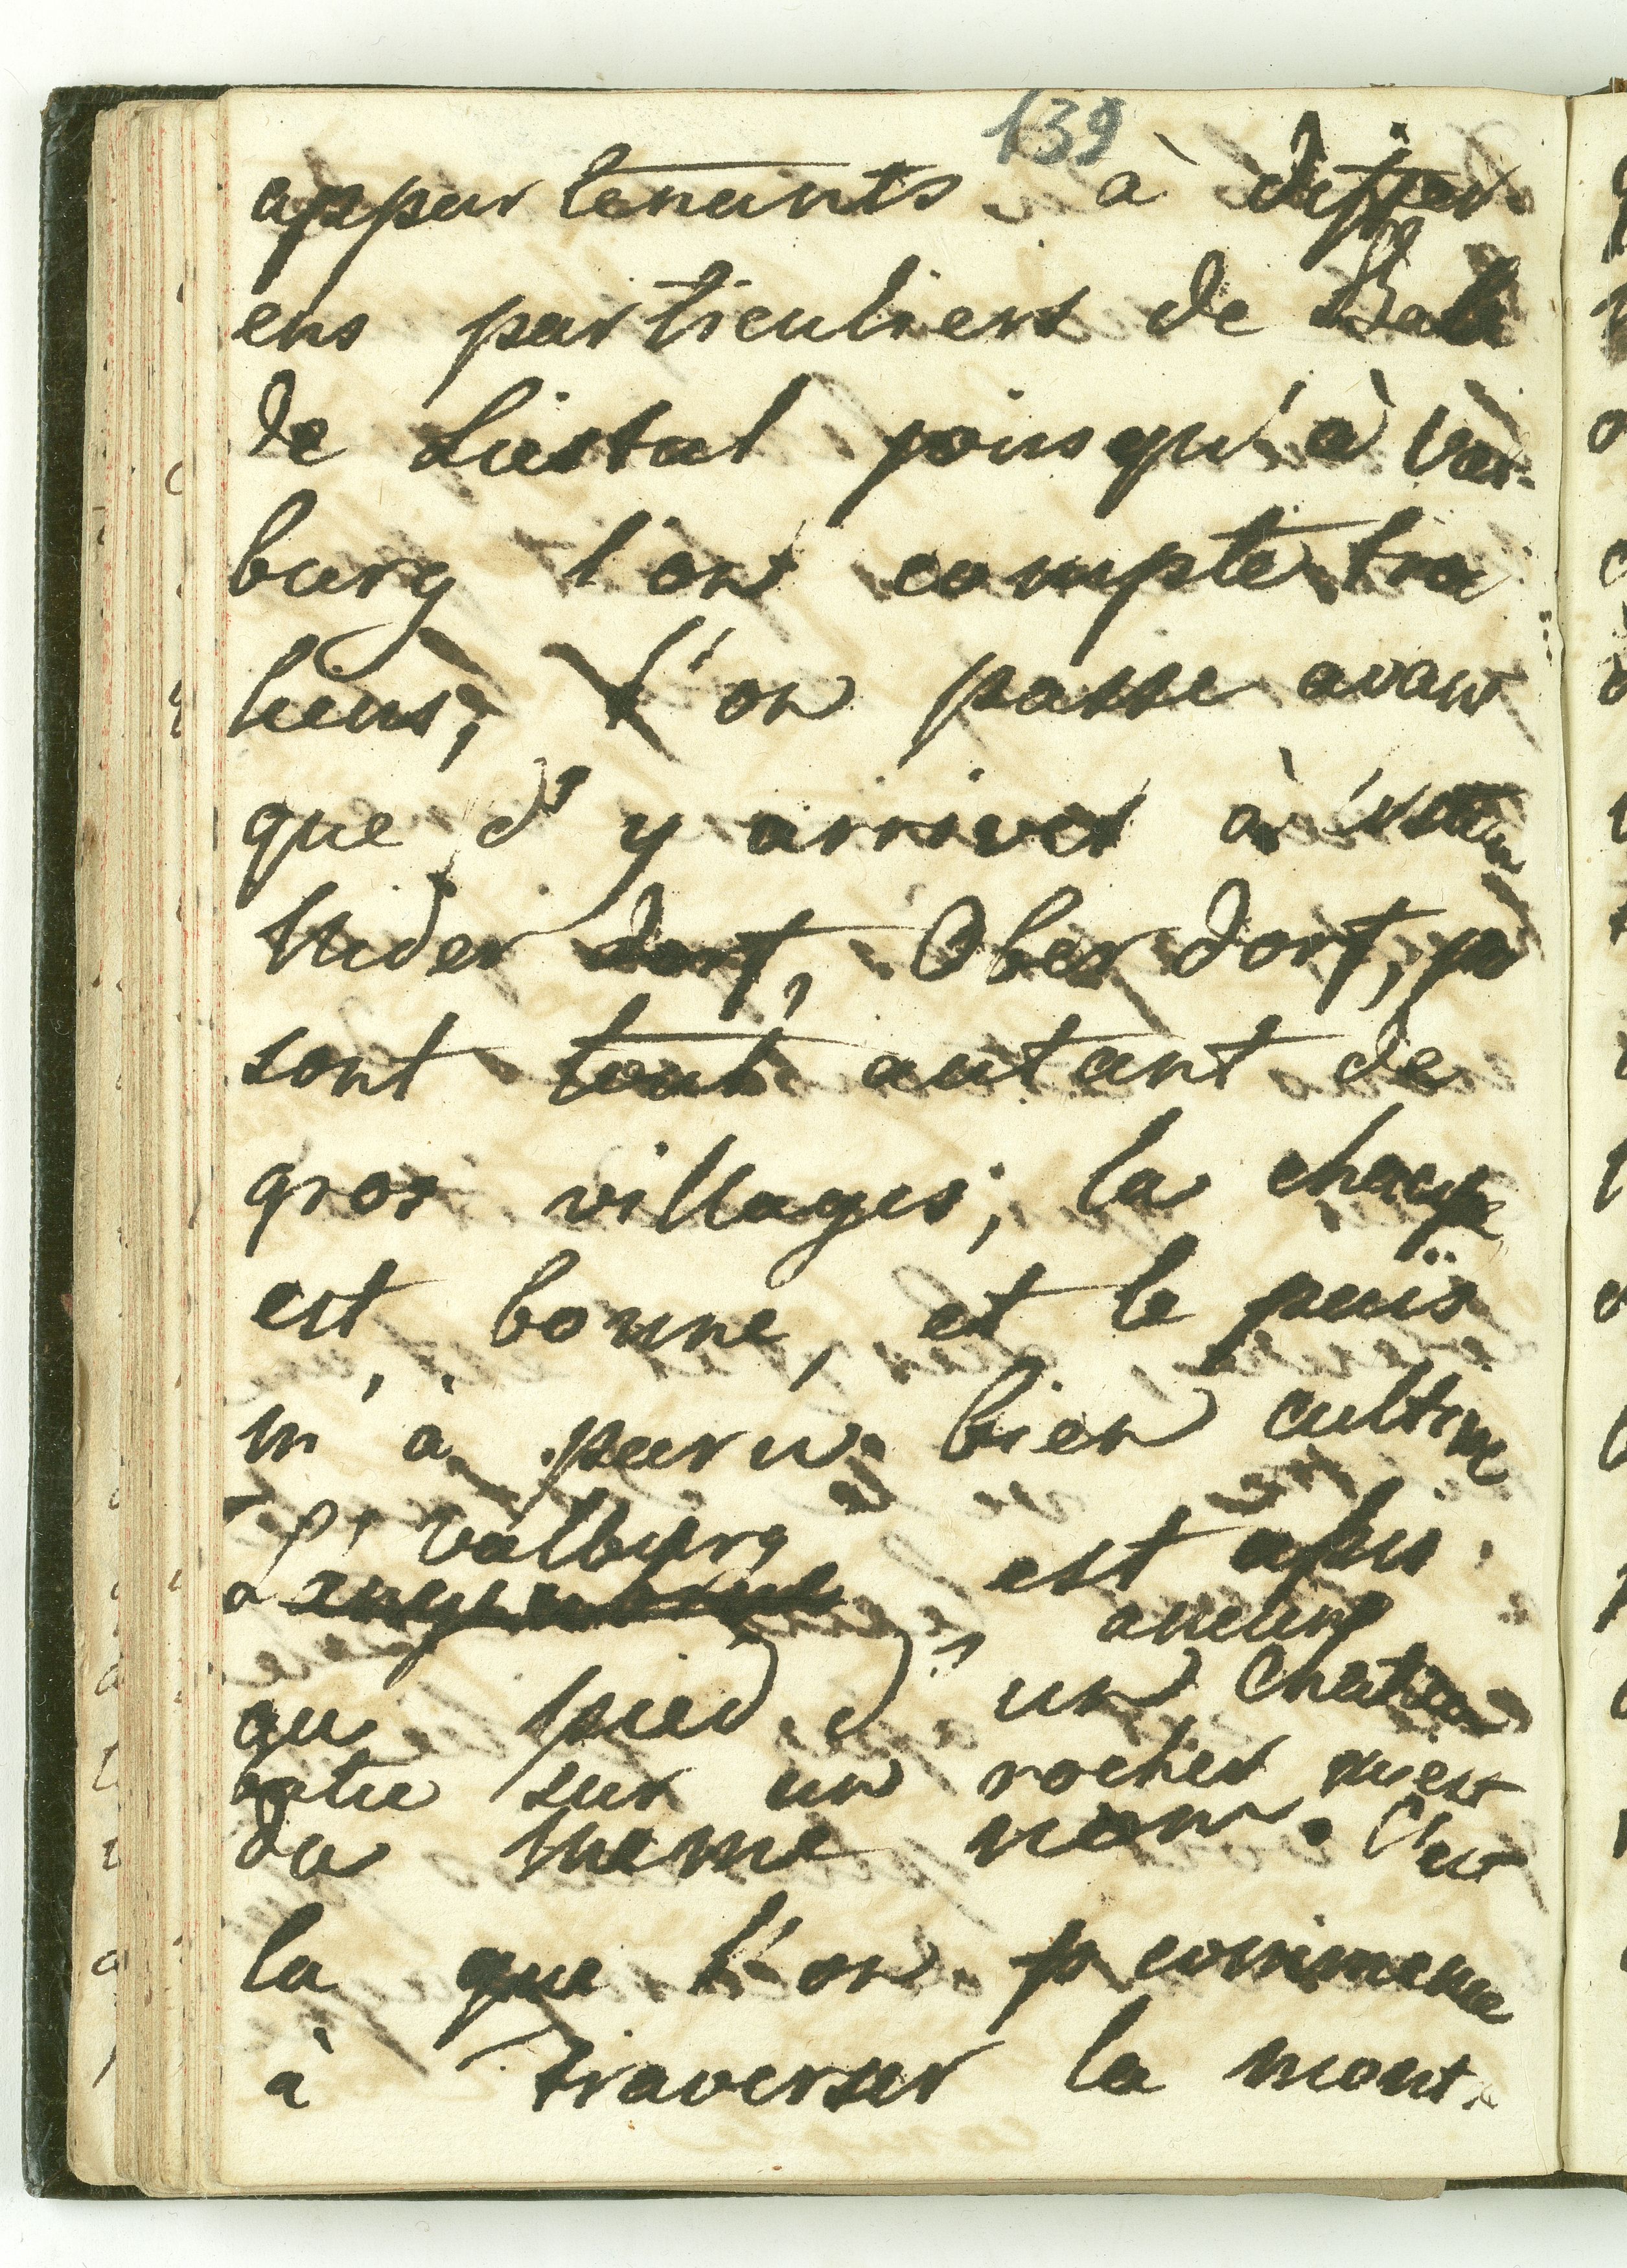 139
appartenants à differ
ens particuliers de Bale
de Liestal jousqu'à Val-
burg l'on compte tro
lieus, l'on passe avan
que d'y arriver à
Nider dorf, Ober dorf,
sont tout autant de
gros villages, la
est bonne, et le païs
m'à paru bien cultive
Valburg
est assis
ancien
au pied d'un Chateau
batie sur un rocher
du meme nom. C'est
la que l'on commence
à traverser la mont